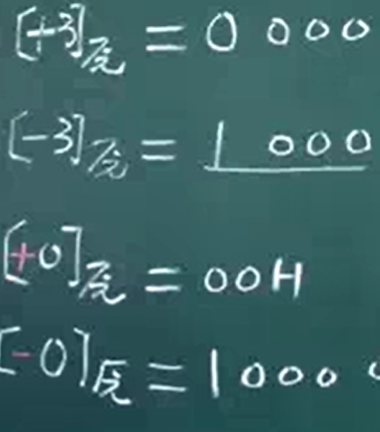 [+3]原 = 0 000
[-3]原 = 1 000
[+0]原 = 00H
[-0]原 = 1000